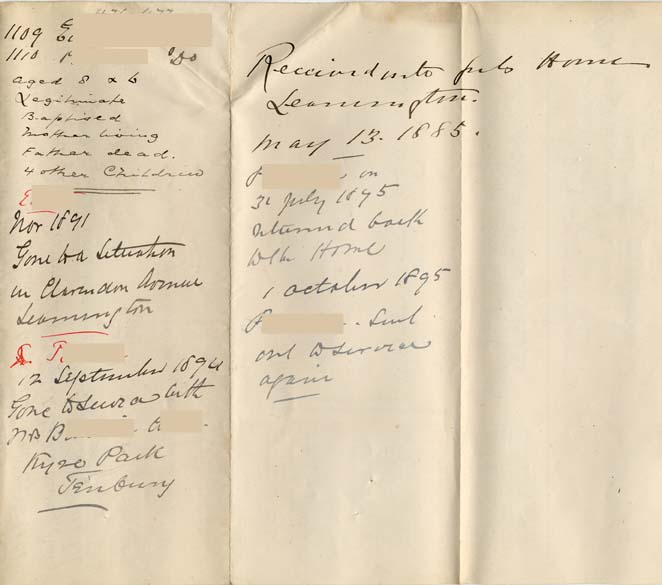 1109 E
1110 F Do
aged 8 & 6
Legitimate
Baptised
Mother living
Father dead.
4 other Children
E
Nov 1891
Gone to a Situation
in Clarendon Avenue
Leamington
F.
12 September 1894
Gone to Service with
Mrs B
Kyre Park
Tenbury
Received into Home
Leamington.
May 13. 1885.
F on
31 July 1895
returned back
to the Home
1 October 1895
F. Sent
out to service
again